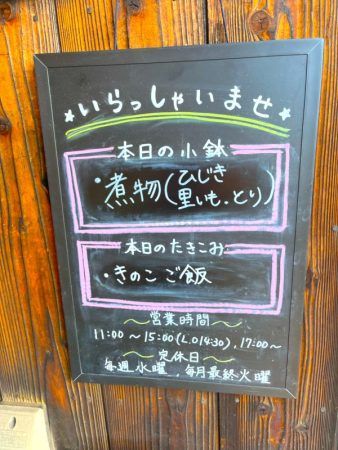 ☆いらっしゃいませ☆
本日の小鉢
・煮物(ひじき
里いも・とり)
本日のたきこみ
・きのこご飯
〜営業時間〜
11:00〜15:00(L.O14:30), 17:00〜
〜定休日〜
毎週水曜, 毎月最終火曜